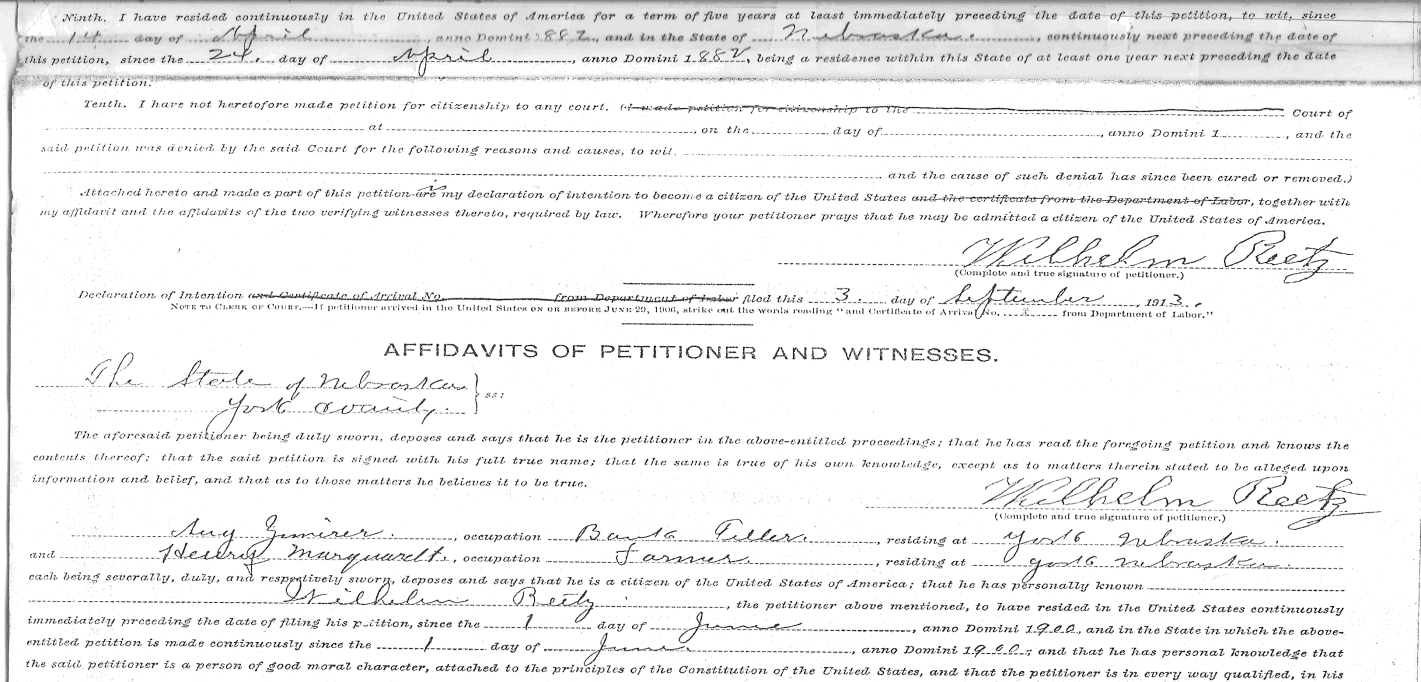 Ninth. I have resided continuously in the United States of America for a term of five years at least immediately preceding the date of this petition, to wit, since
the 14 day of April, anno Domini 1882, and in the State of Nebraska, continuously next preceding the date of
this petition, since the 24. day of April, anno Domini 1882, being a residence within this State of at least one year next preceding the date
of this petition.
Tenth. I have not heretofore made petition for citizenship to any court. (I made petition for citizenship to the Court of
at , on the day of , anno Domini 1 , and the
said petition was denied by the said Court for the following reasons and causes, to wit.
and the cause of such denial has since been cured or removed.)
Attached hereto and made a part of this petition are is my declaration of intention to become a citizen of the United States and the certificate from the Department of Labor, together with
my affidavit and the affidavits of the two verifying witnesses thereto, required by law. Wherefore your petitioner prays that he may be admitted a citizen of the United States of America.
Wilhelm Reetz
(Complete and true signature of petitioner.)
Declaration of Intention and Certificate of Arrival No. from Department of Labor filed this 3. day of September, 1913.
NOTE TO CLERK OF COURT.—If petitioner arrived in the United States ON OR BEFORE JUNE 29, 1906, strike out the words reading "and Certificate of Arrival No. from Department of Labor."
AFFIDAVITS OF PETITIONER AND WITNESSES.
The State of Nebraska
York County. ss:
The aforesaid petitioner being duly sworn, deposes and says that he is the petitioner in the above-entitled proceedings; that he has read the foregoing petition and knows the
contents thereof; that the said petition is signed with his full true name; that the same is true of his own knowledge, except as to matters therein stated to be alleged upon
information and belief, and that as to those matters he believes it to be true.
Wilhelm Reetz
(Complete and true signature of petitioner.)
Aug , occupation Bank Teller., residing at York Nebraska.
and Henry Marquardt., occupation Farmer., residing at York Nebraska.
each being severally, duly, and respectively sworn, deposes and says that he is a citizen of the United States of America; that he has personally known
Wilhelm Reetz, the petitioner above mentioned, to have resided in the United States continuously
immediately preceding the date of filing his petition, since the 1 day of June, anno Domini 1900, and in the State in which the above-
entitled petition is made continuously since the 1 day of June, anno Domini 1900; and that he has personal knowledge that
the said petitioner is a person of good moral character, attached to the principles of the Constitution of the United States, and that the petitioner is in every way qualified, in his